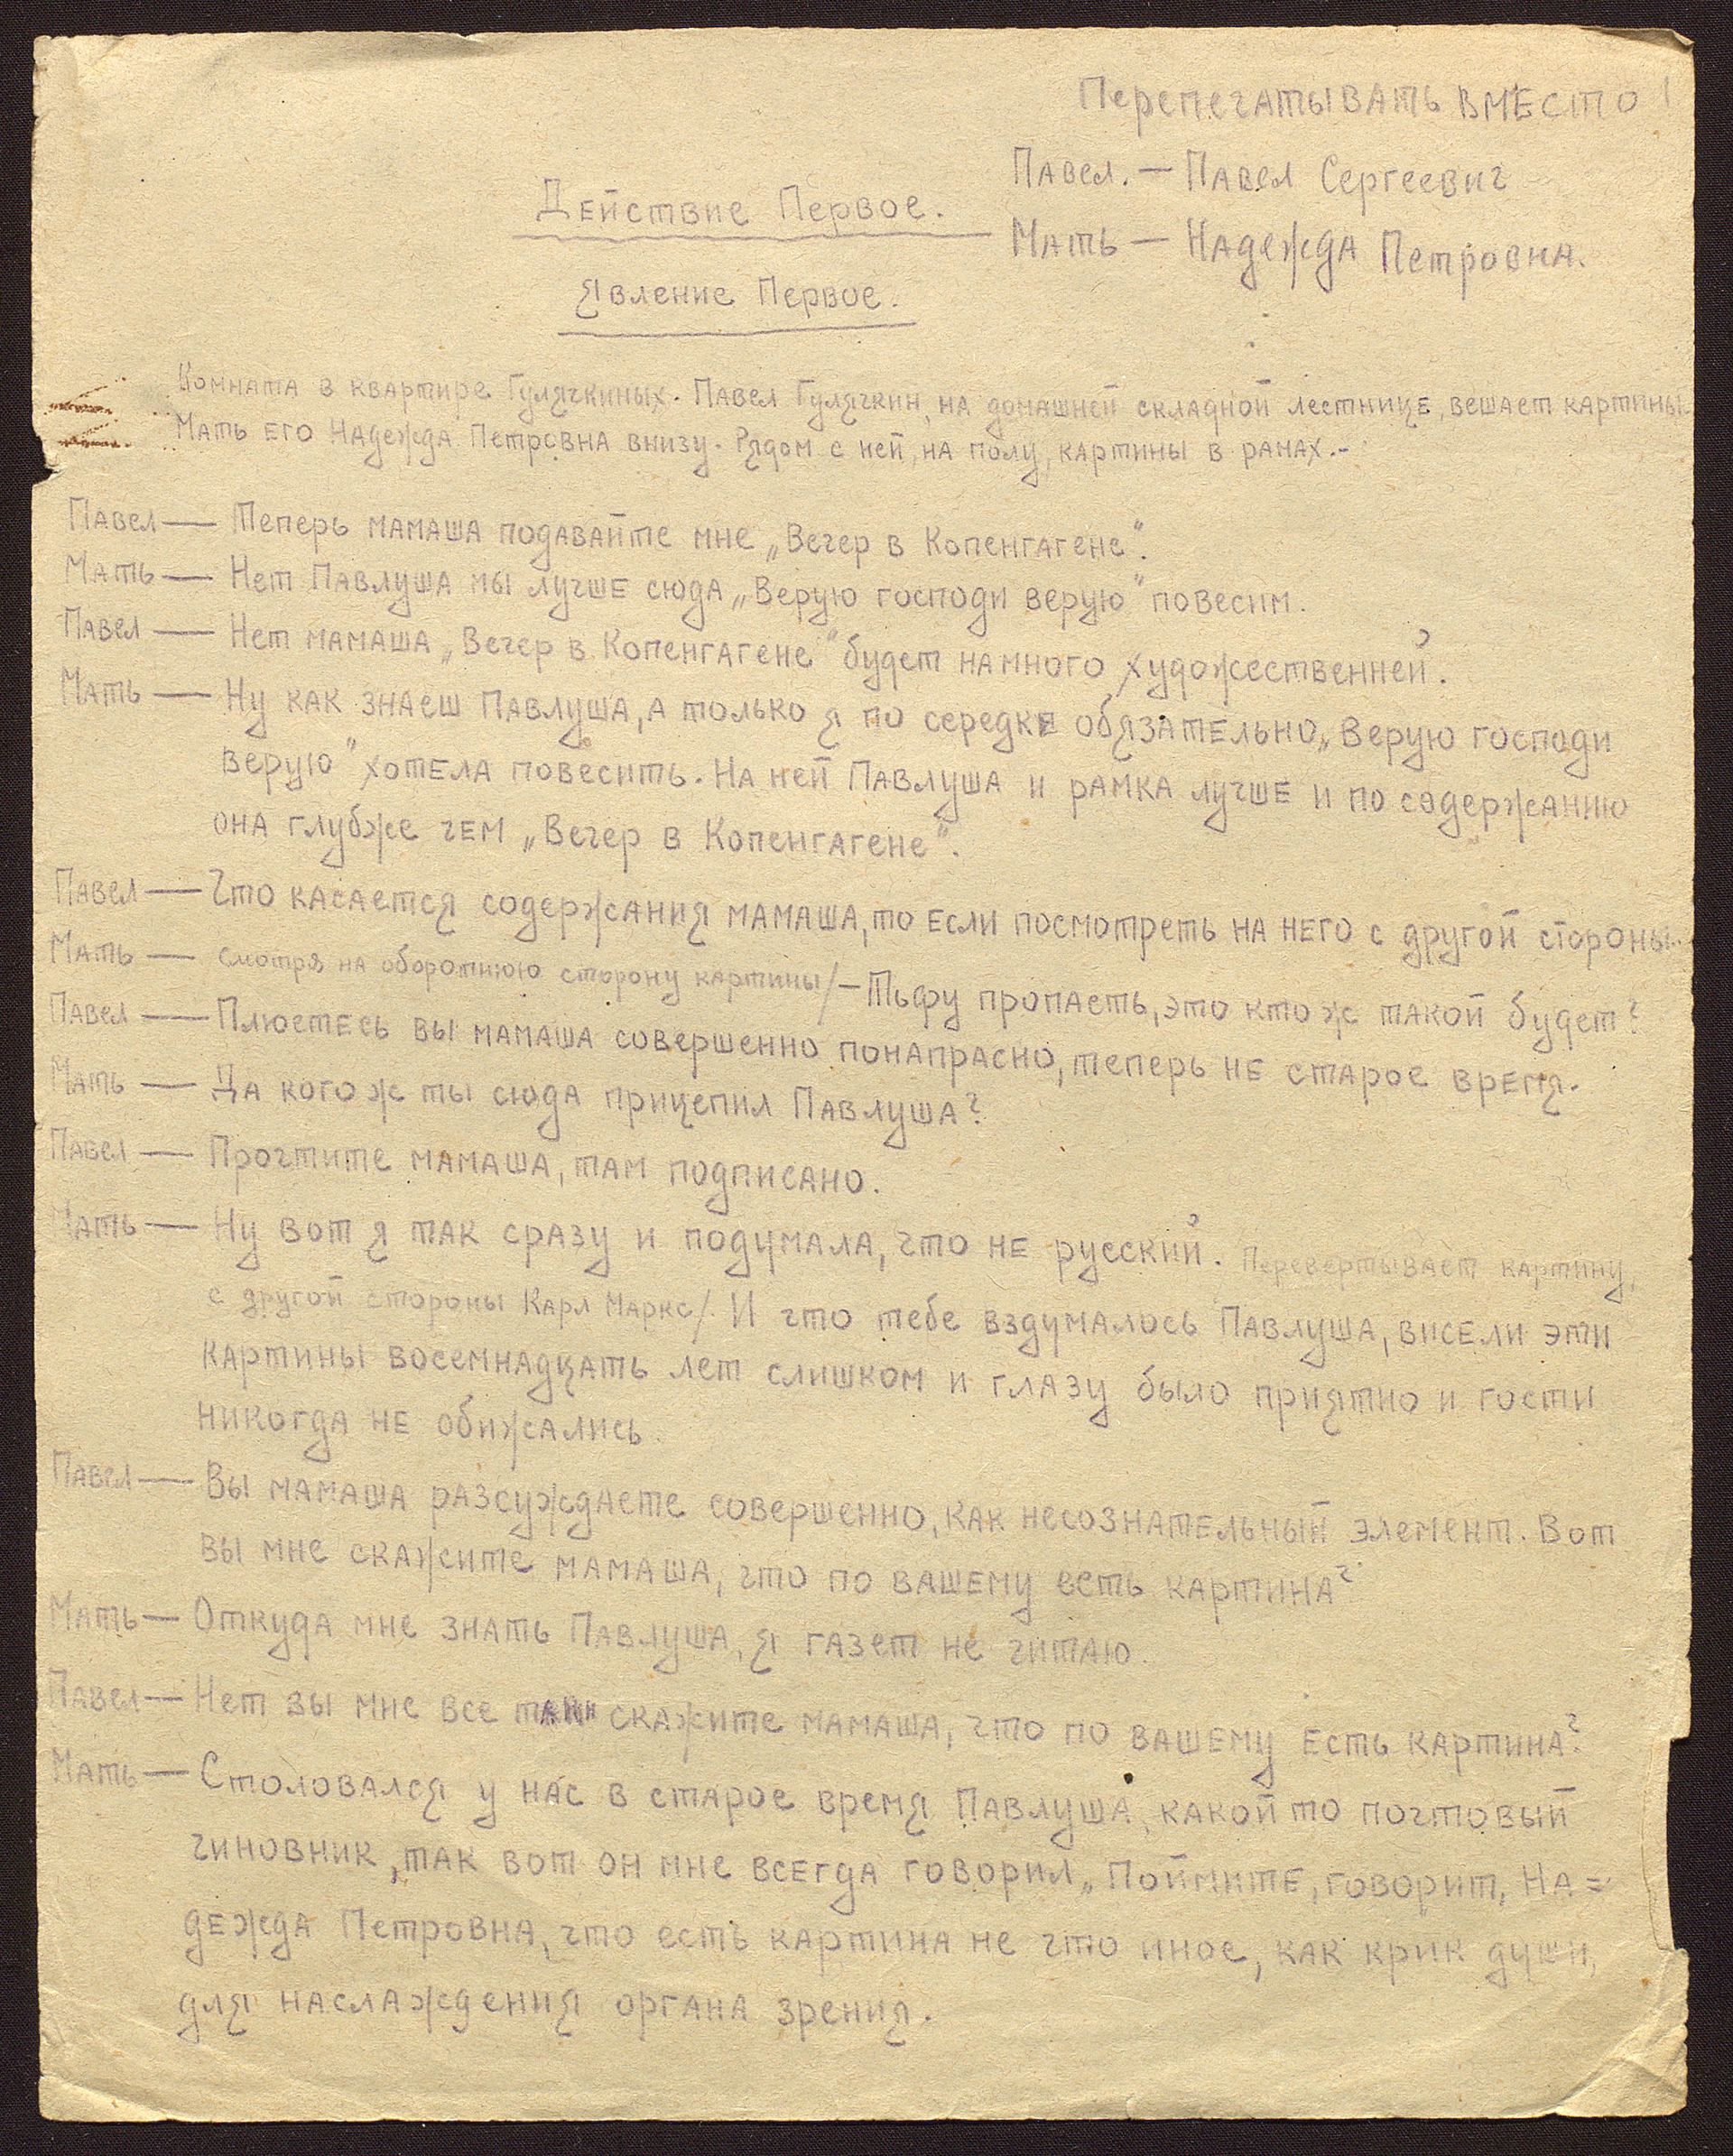 Перепечатывать вместо!
Павел. — Павел Сергеевич
Мать — Надежда Петровна.
Действие Первое.
Явление Первое.
Комната в квартире Гулячкиных. Павел Гулячкин, на домашней складной лестнице, вешает картины.
Мать его Надежда Петровна внизу. Рядом с ней, на полу, картины в рамах.-
Павел — Теперь мамаша подавайте мне „Вечер в Копенгагене“.
Мать — Нет Павлуша мы лучше сюда „Верую господи верую“ повесим.
Павел — Нет мамаша „Вечер в Копенгагене“ будет намного художественней.
Мать — Ну как знаеш Павлуша, а только я по середке обязательно „Верую господи
верую“ хотела повесить. На ней Павлуша и рамка лучше и по содержанию
она глубже чем „Вечер в Копенгагене“.
Павел — Что касается содержания мамаша, то если посмотреть на него с другой стороны.
Мать — смотря на оборотнюю сторону картины/ — Тьфу пропасть, это кто ж такой будет?
Павел — Плюетесь вы мамаша совершенно понапрасно, теперь не старое время.
Мать — Да кого ж ты сюда прицепил Павлуша?
Павел — Прочтите мамаша, там подписано.
Мать — Ну вот я так сразу и подумала, что не русский. Перевертывает картину,
с другой стороны Карл Маркс/. И что тебе вздумалось Павлуша, висели эти
картины восемнадцать лет слишком и глазу было приятно и гости
никогда не обижались.
Павел — Вы мамаша разсуждаете совершенно, как несознательный элемент. Вот
вы мне скажите мамаша, что по вашему есть картина?
Мать — Откуда мне знать Павлуша, я газет не читаю.
Павел — Нет вы мне все таки скажите мамаша, что по вашему есть картина?
Мать — Столовался у нас в старое время Павлуша, какой то почтовый
чиновник, так вот он мне всегда говорил „Поймите, говорит, На=
дежда Петровна, что есть картина не что иное, как крик души,
для наслаждения органа зрения.